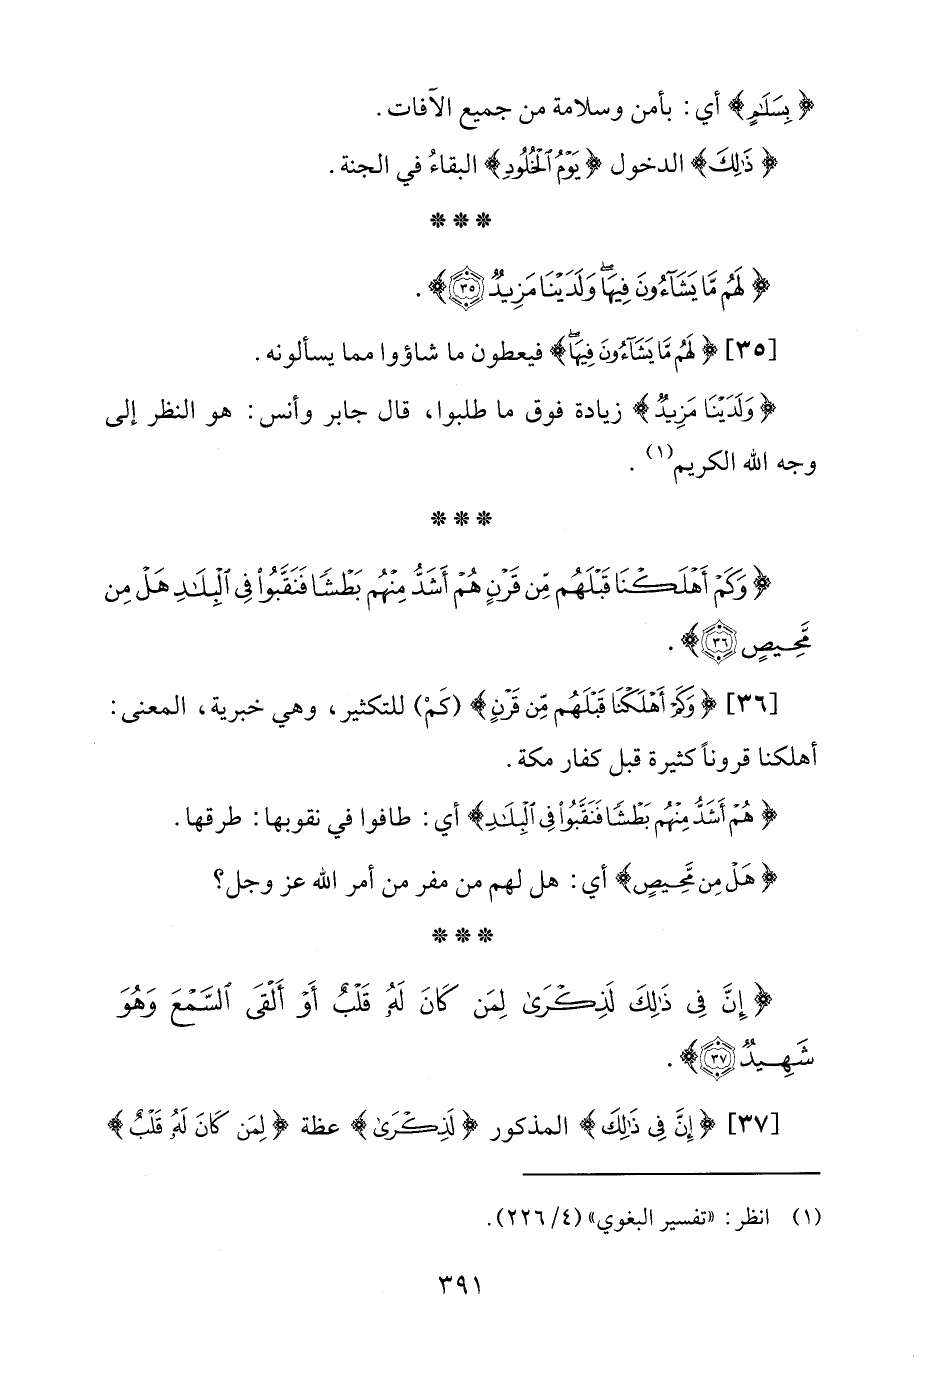 ﴿ بِسَلَٰمٍ﴾ أي: بأمن وسلامة من جميع الآفات.
﴿ ذَٰلِكَ﴾ الدخول ﴿ يَوْمُ ٱلْخُلُودِ﴾ البقاءُ في الجنة.
* * *
﴿ لَهُم مَّا يَشَآءُونَ فِيهَا ۖ وَلَدَيْنَا مَزِيدٌ ٣٥﴾.
[٣٥] ﴿ لَهُم مَّا يَشَآءُونَ فِيهَا ۖ﴾ فيعطون ما شاؤوا مما يسألونه.
﴿ وَلَدَيْنَا مَزِيدٌ ﴾ زيادة فوق ما طلبوا، قال جابر وأنس: هو النظر إلى
وجه الله الكريم(١).
* * *
﴿ وَكَمْ أَهْلَكْنَا قَبْلَهُم مِّن قَرْنٍ هُمْ أَشَدُّ مِنْهُم بَطْشًا فَنَقَّبُوا۟ فِى ٱلْبِلَٰدِ هَلْ مِن
مَّحِيصٍ ٣٦﴾.
[٣٦] ﴿ وَكَمْ أَهْلَكْنَا قَبْلَهُم مِّن قَرْنٍ ﴾ (كَمْ) للتكثير، وهي خبرية، المعنى:
أهلكنا قروناً كثيرة قبل كفار مكة.
﴿ هُمْ أَشَدُّ مِنْهُم بَطْشًا فَنَقَّبُوا۟ فِى ٱلْبِلَٰدِ﴾ أي: طافوا في نقوبها: طرقها.
﴿ هَلْ مِن مَّحِيصٍ﴾ أي: هل لهم من مفر من أمر الله عز وجل؟
* * *
﴿ إِنَّ فِى ذَٰلِكَ لَذِكْرَىٰ لِمَن كَانَ لَهُۥ قَلْبٌ أَوْ أَلْقَى ٱلسَّمْعَ وَهُوَ
شَهِيدٌ ٣٧﴾.
[٣٧] ﴿ إِنَّ فِى ذَٰلِكَ ﴾ المذكور ﴿ لَذِكْرَىٰ ﴾ عظة ﴿ لِمَن كَانَ لَهُۥ قَلْبٌ ﴾
(١) انظر: «تفسير البغوي» (٤/ ٢٢٦).
٣٩١